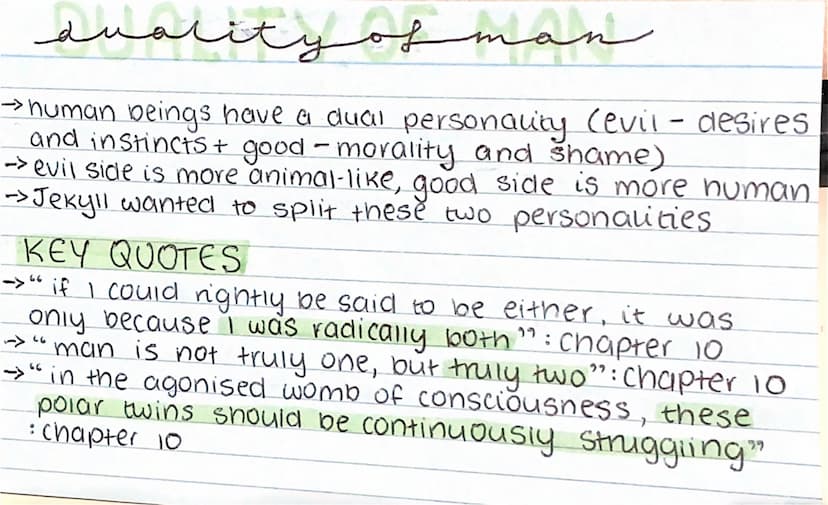 DUALITY OF MAN
duality of man
→human beings have a dual personality (evil - desires
and instincts + good - morality and shame)
→evil side is more animal-like, good side is more human
→Jekyll wanted to split these two personalities
KEY QUOTES
→“if I could rightly be said to be either, it was
only because I was radically both”: chapter 10
→“man is not truly one, but truly two”: chapter 10
→“in the agonised womb of consciousness, these
polar twins should be continuously struggling”
: chapter 10